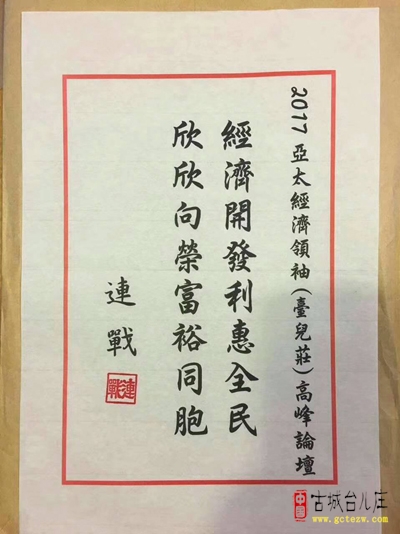 2017亞太經濟領袖(臺兒莊)高峰論壇
經濟開發利惠全民
欣欣向榮富裕同胞
連戰
連戰
中国
古城台儿庄
www.gctezw.com